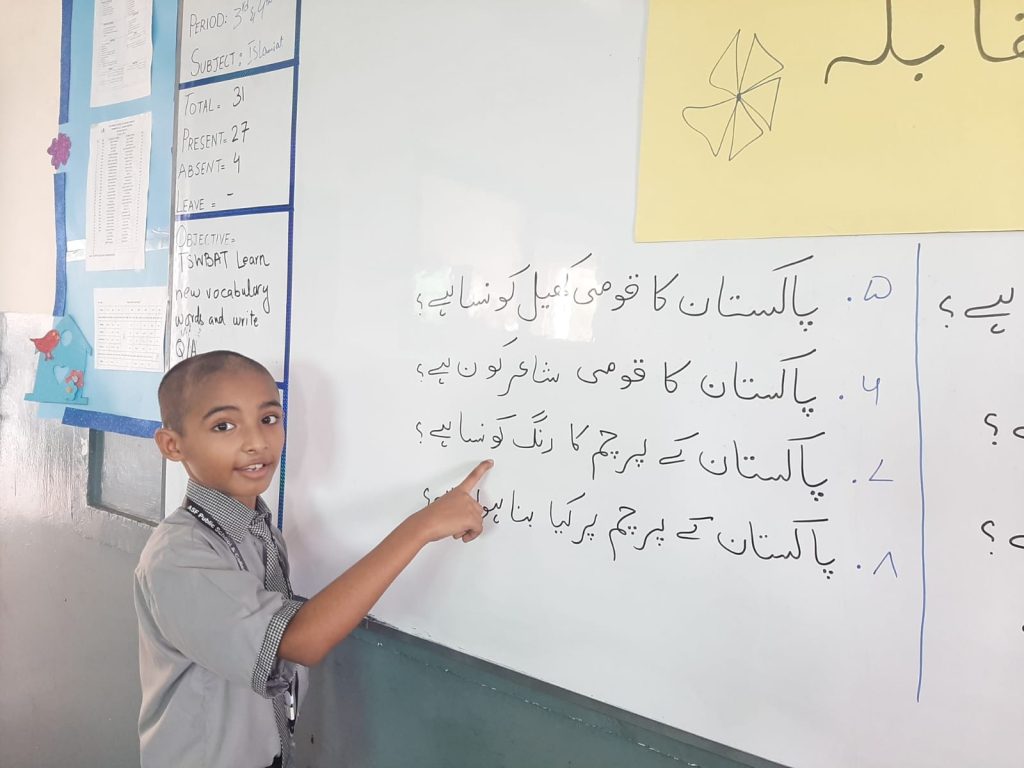 PERIOD: 3rd & 4th
SUBJECT: Islamiat
TOTAL = 31
PRESENT= 27
ABSENT= 4
LEAVE = -
OBJECTIVE=
TSWBAT Learn
new vocabulary
words and write
Q/A
ASF Public
مقابلہ
۵. پاکستان کا قومی کھیل کونسا ہے؟
۶. پاکستان کا قومی شاعر کون ہے؟
۷. پاکستان کے پرچم کا رنگ کونسا ہے؟
۸. پاکستان کے پرچم پر کیا بنا ہوا ہے؟
ہے؟